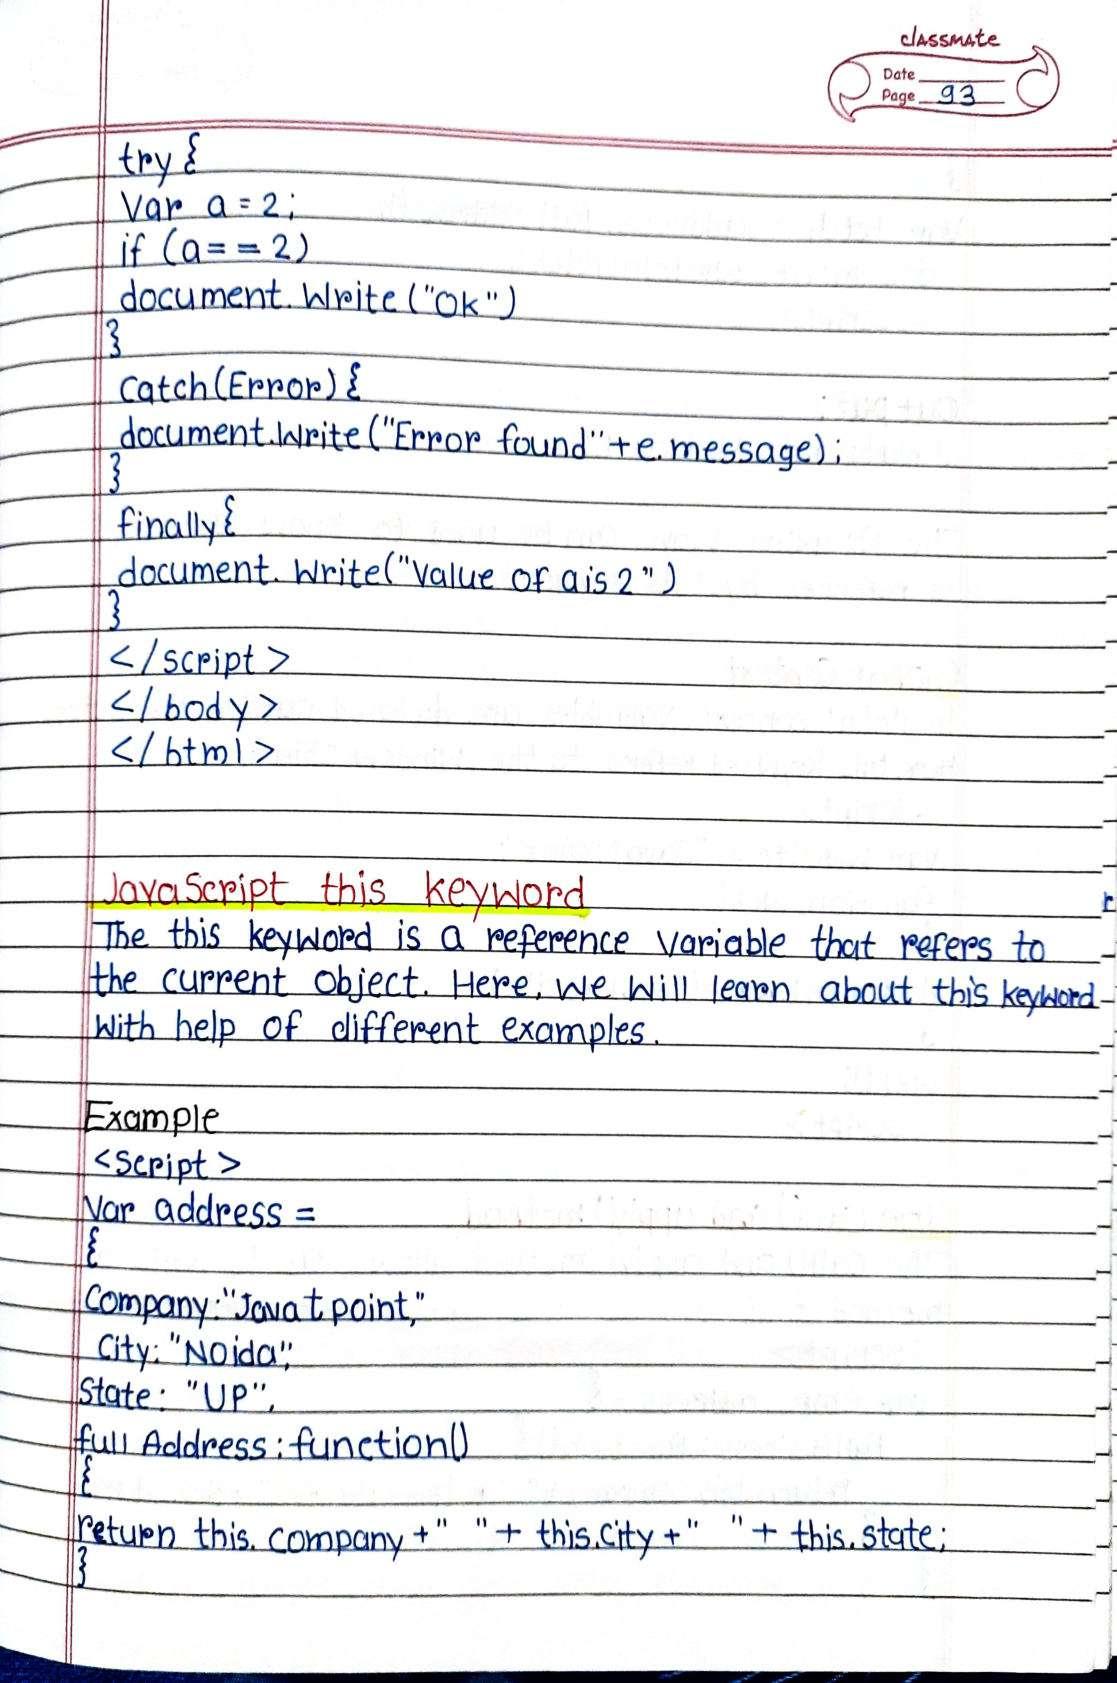 classmate
Date
Page 93
try {
Var a = 2;
if (a == 2)
document.Write("OK")
}
Catch(Error){
document.Write("Error found"+e.message);
}
finally{
document.Write("Value of a is 2")
}
</script>
</body>
</html>
JavaScript this keyword
The this keyword is a reference variable that refers to
the current object. Here, we will learn about this keyword
With help of different examples.
Example
<Script>
Var address =
{
Company:"Javatpoint,"
City: "Noida",
State: "UP",
full Address: function()
{
return this.company+" "+ this.city+" "+ this.state;
}